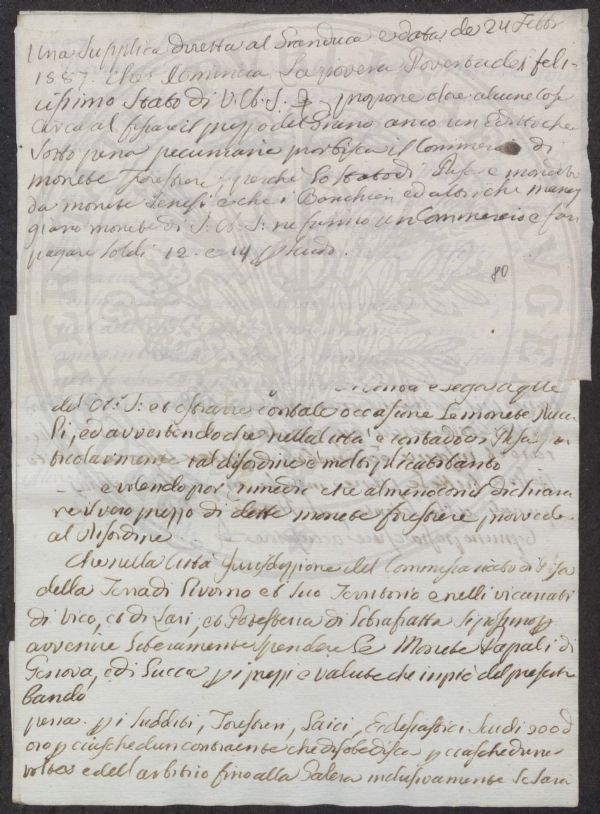 Una Supplica diretta al Granduca e data de 24 Febbr
1587. che comincia La povera Poverta del feli-
cissimo Stato di V. A. S. propone oltre alcune cose
circa al fissare il prezzo del Grano anco un Editto che
sotto pena pecuniaria proibisca il Commercio di
monete forestiere perche lo stato di Pisa e inondato
da monete Genesi e che i Banchieri ed altri che maneg
giano monete di S. A. S. ne fanno un Commercio e fan
pagare soldi 12. e 14 p Scudo.
80
nuova e segar quelle
di S. A. S. et estrarre con tale occasione le monete
ed avvertendo che nella Città e contado di Pisa
ticolarmente tal disordine è molto
e volendo por rimedio che almeno con il dichiara
re il vero prezzo di dette monete forestiere provvede
al disordine
Che nella Città Giurisdizione del Commissariato di Pisa
della Terra di Livorno et suo Territorio e nelli vicariati
di Vico, et di Lari, et Potesteria di Librafratta si possino p
avvenire liberamente spendere le Monete Papali di
Genova, e di Lucca p i prezzi e valute che in piè del presente
bando
pena p i sudditi, forestieri, Laici, Ecclesiastici Scudi 200 d
oro p ciaschedun contraente che disobedisca p ciascheduna
volta e dell'arbitrio fino alla Galera inclusivamente